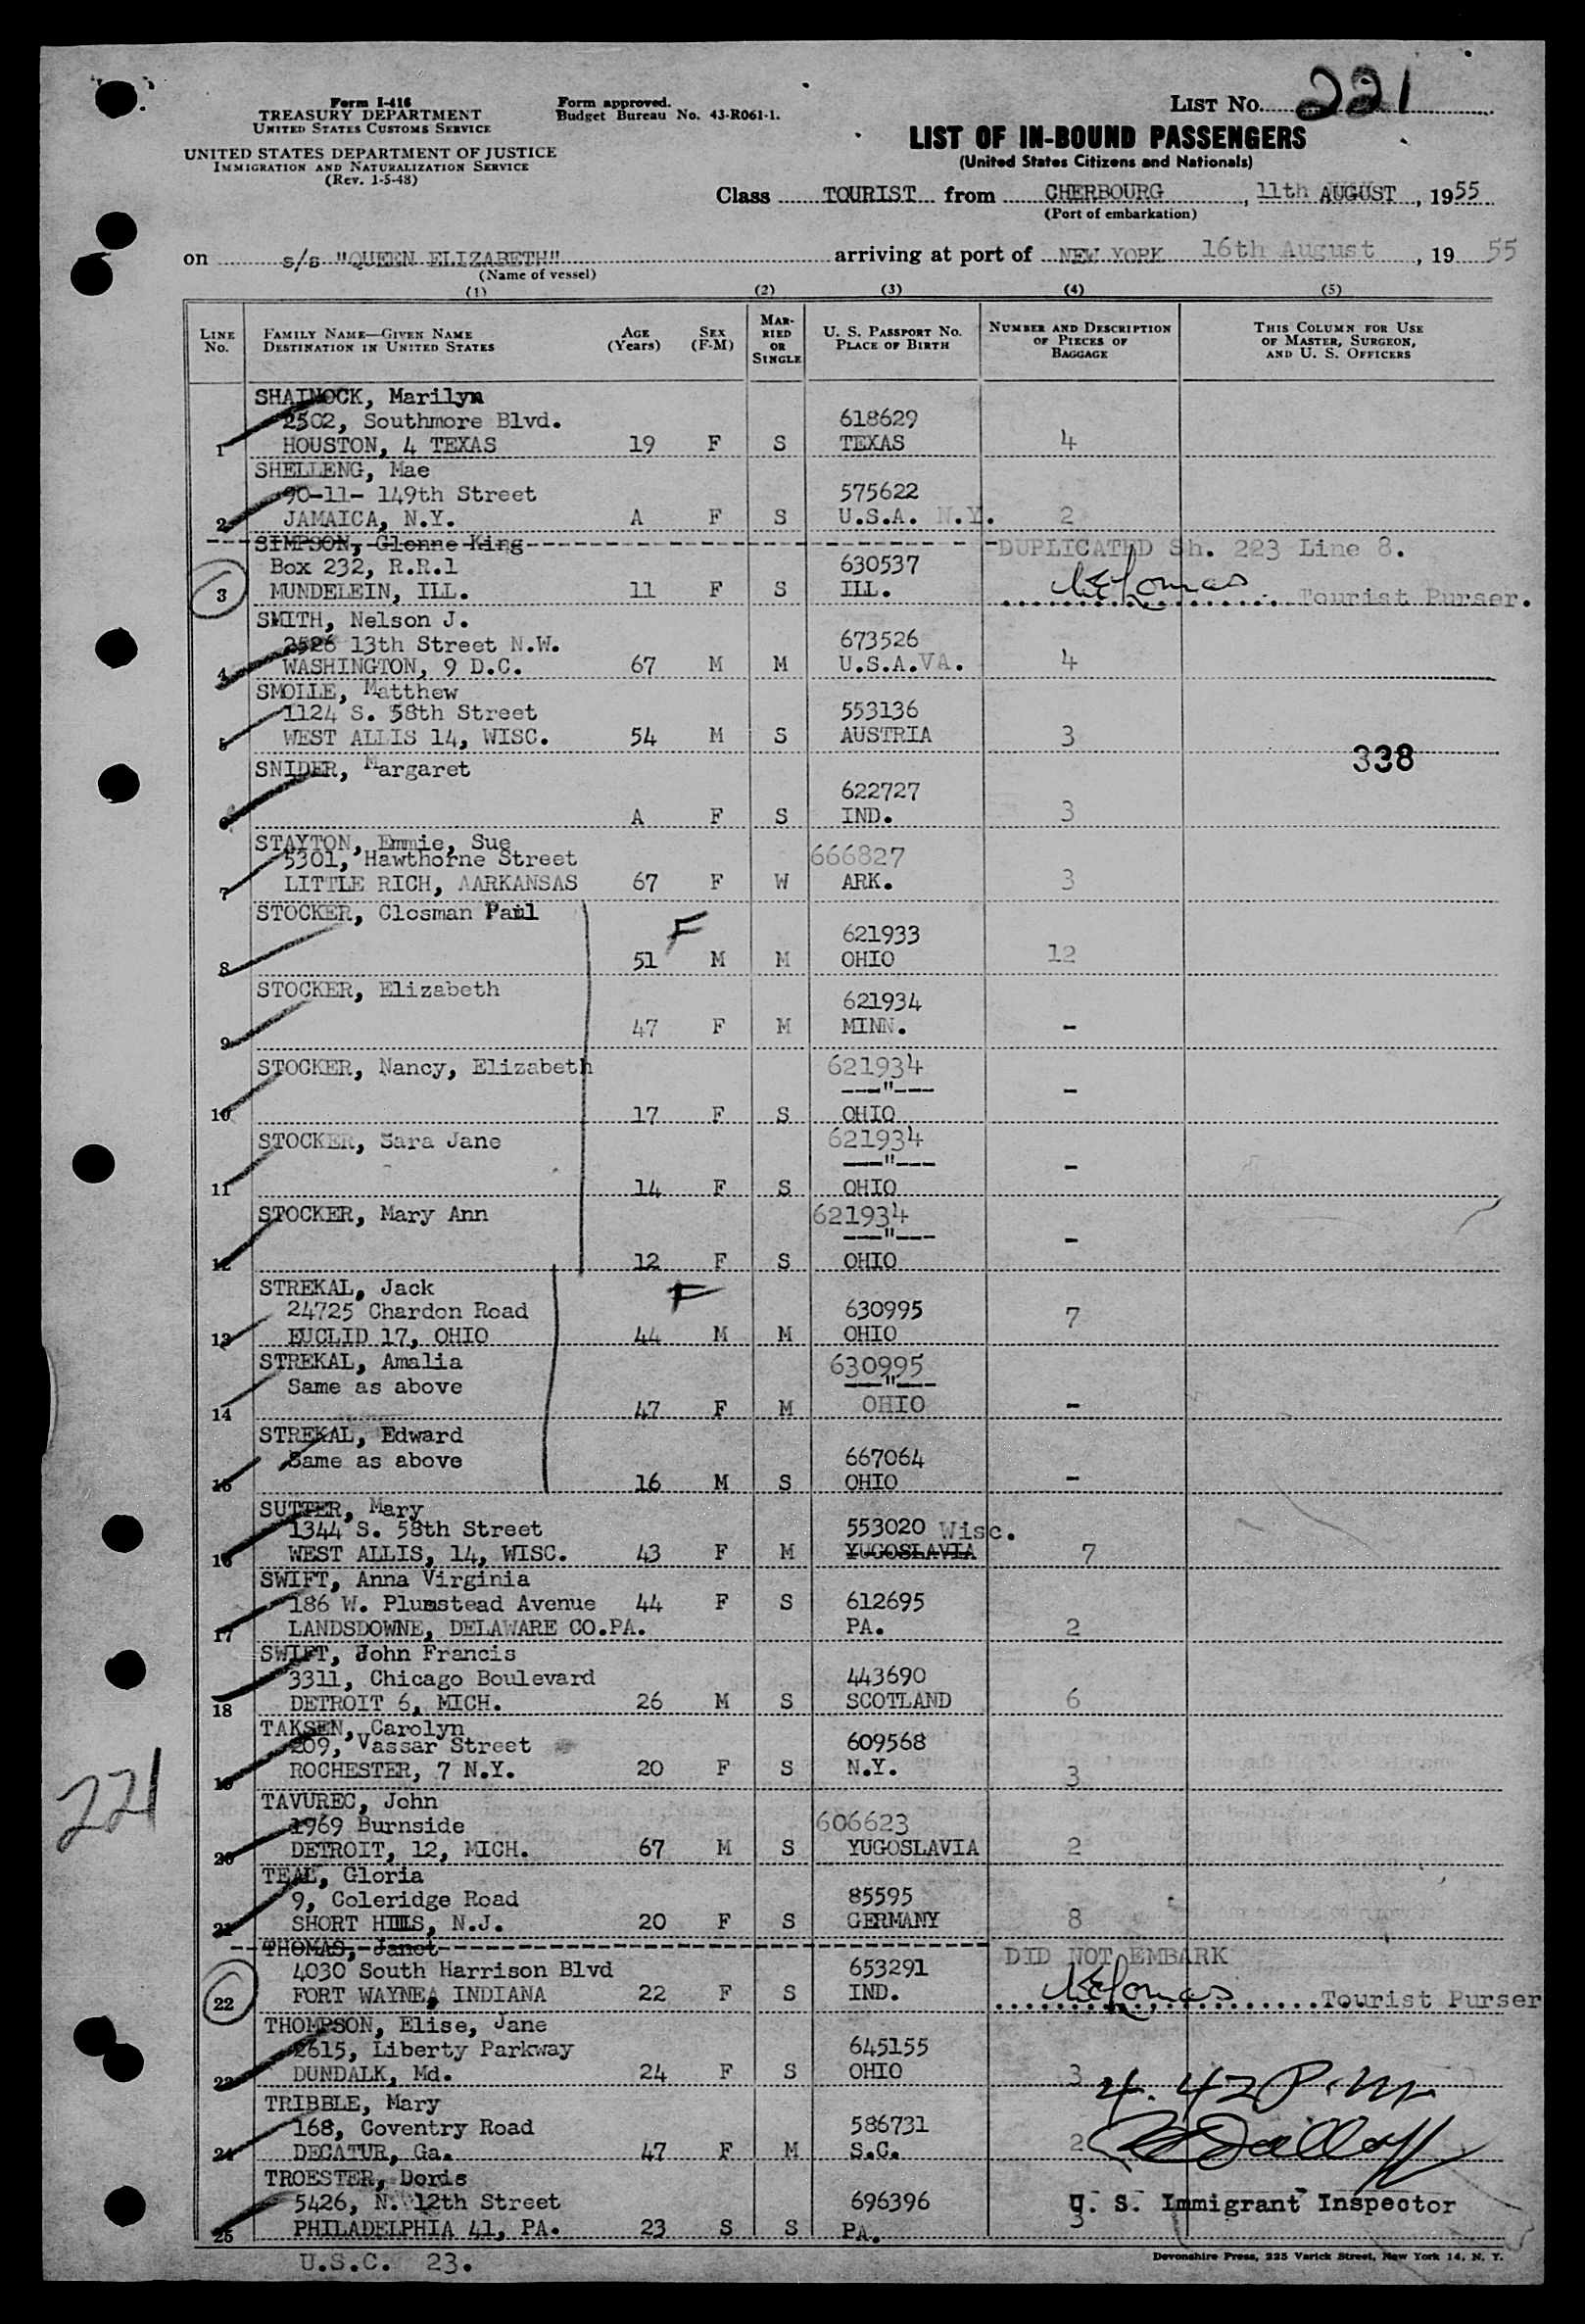 Form I-416
TREASURY DEPARTMENT
UNITED STATES CUSTOMS SERVICE
UNITED STATES DEPARTMENT OF JUSTICE
IMMIGRATION AND NATURALIZATION SERVICE
(Rev. 1-5-48)
Form approved.
Budget Bureau No. 43-R061-1.
LIST No. 221
LIST OF IN-BOUND PASSENGERS
(United States Citizens and Nationals)
Class TOURIST from CHERBOURG, 11th AUGUST, 1955
(Port of embarkation)
on s/s "QUEEN ELIZABETH" arriving at port of NEW YORK 16th August, 19 55
(Name of vessel)
(1) (2) (3) (4) (5)
LINE No. FAMILY NAME—GIVEN NAME DESTINATION IN UNITED STATES AGE (Years) SEX (F-M) MARRIED OR SINGLE U. S. PASSPORT No. PLACE OF BIRTH NUMBER AND DESCRIPTION OF PIECES OF BAGGAGE THIS COLUMN FOR USE OF MASTER, SURGEON, AND U. S. OFFICERS
SHAINOCK, Marilyn
2502, Southmore Blvd. 618629
1 HOUSTON, 4 TEXAS 19 F S TEXAS 4
SHELLENG, Mae
90-11- 149th Street 575622
2 JAMAICA, N.Y. A F S U.S.A. N.Y. 2
SIMPSON, Glenne King DUPLICATED Sh. 223 Line 8.
Box 232, R.R.1 630537
3 MUNDELEIN, ILL. 11 F S ILL. Tourist Purser.
SMITH, Nelson J.
2526 13th Street N.W. 673526
4 WASHINGTON, 9 D.C. 67 M M U.S.A. VA. 4
SMOLLE, Matthew
1124 S. 58th Street 553136
5 WEST ALLIS 14, WISC. 54 M S AUSTRIA 3
338
SNIDER, Margaret
622727
6 A F S IND. 3
STAYTON, Emmie, Sue
5301, Hawthorne Street 666827
7 LITTLE RICH, AARKANSAS 67 F W ARK. 3
STOCKER, Closman Paul F
621933
8 51 M M OHIO 12
STOCKER, Elizabeth 621934
9 47 F M MINN. -
STOCKER, Nancy, Elizabeth 621934
---"---
10 17 F S OHIO -
STOCKER, Sara Jane 621934
---"---
11 14 F S OHIO -
STOCKER, Mary Ann 621934
---"---
12 12 F S OHIO -
STREKAL, Jack F
24725 Chardon Road 630995 7
13 EUCLID 17, OHIO 44 M M OHIO
STREKAL, Amalia 630995
Same as above ---"---
14 47 F M OHIO -
STREKAL, Edward
Same as above 667064
15 16 M S OHIO -
SUTTER, Mary
1344 S. 58th Street 553020 Wisc.
16 WEST ALLIS, 14, WISC. 43 F M YUGOSLAVIA 7
SWIFT, Anna Virginia
186 W. Plumstead Avenue 44 F S 612695
17 LANDSDOWNE, DELAWARE CO.PA. PA. 2
SWIFT, John Francis
3311, Chicago Boulevard 443690
18 DETROIT 6, MICH. 26 M S SCOTLAND 6
TAKSEN, Carolyn
209, Vassar Street 609568
19 ROCHESTER, 7 N.Y. 20 F S N.Y. 3
221
TAVUREC, John
1969 Burnside 606623
20 DETROIT, 12, MICH. 67 M S YUGOSLAVIA 2
TEAL, Gloria
9, Coleridge Road 85595
21 SHORT HILLS, N.J. 20 F S GERMANY 8
THOMAS, Janet DID NOT EMBARK
4030 South Harrison Blvd 653291
22 FORT WAYNE, INDIANA 22 F S IND. Tourist Purser
THOMPSON, Elise, Jane
2615, Liberty Parkway 645155
23 DUNDALK, Md. 24 F S OHIO 3
4.42 P.m.
TRIBBLE, Mary
168, Coventry Road 586731
24 DECATUR, Ga. 47 F M S.C. 2
TROESTER, Doris
5426, N. 12th Street 696396 U. S. Immigrant Inspector
25 PHILADELPHIA 41, PA. 23 S S PA. 3
U.S.C. 23.
Devonshire Press, 225 Varick Street, New York 14, N. Y.